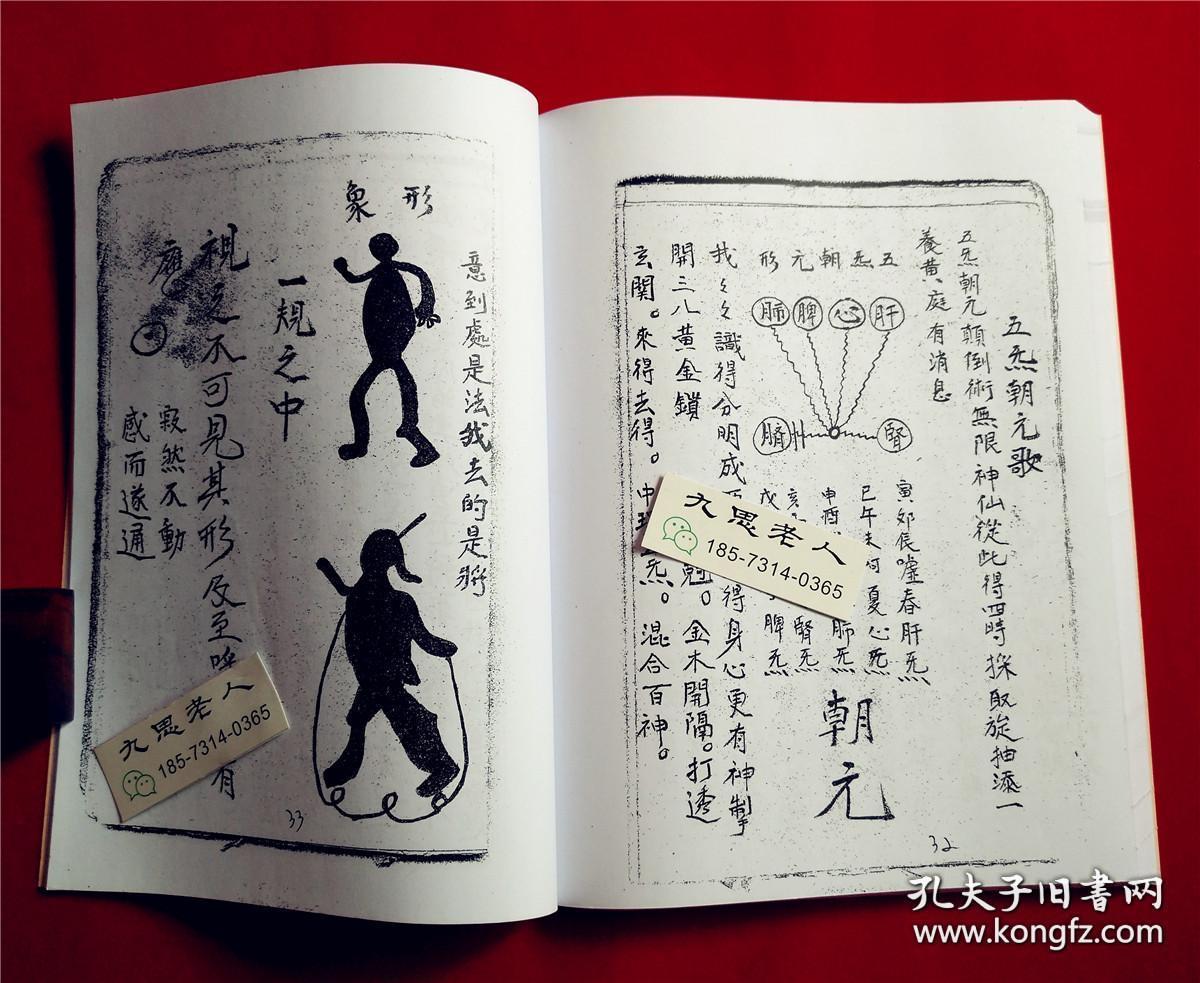 五炁朝元歌
五炁朝元顛倒術無限神仙從此得四時採取旋抽添一
養黃庭有消息
形元朝炁五
肺 脾 心 肝
腎
寅卯辰噓春肝炁
巳午未呵夏心炁
申酉 肺炁
亥 腎炁
戊 脾炁
朝元
我々々識得分明成 得身心更有神掣
開三八黃金鎖 金木開隔。打透
玄關。來得去得。中 炁。混合百神。
32
象形
意到處是法我去的是將
一規之中
視之不可見其形及至 有
應
寂然不動
感而遂通
33
九思老人
185-7314-0365
九思老人
185-7314-0365
孔夫子旧书网
www.kongfz.com